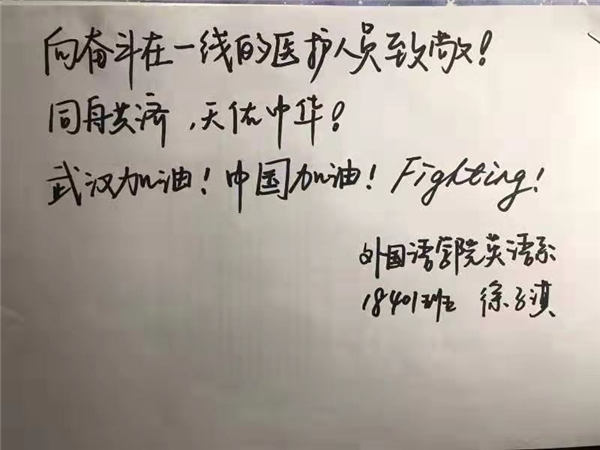 向奋斗在一线的医护人员致敬!
同舟共济,天佑中华!
武汉加油!中国加油! Fighting!
外国语学院英语系
18401班 徐子淇